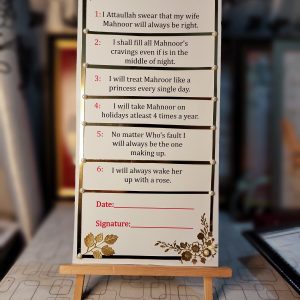 1: I Attaullah swear that my wife
Mahnoor will always be right.
2: I shall fill all Mahnoor's
cravings even if is in the
middle of night.
3: I will treat Mahroor like a
princess every single day.
4: I will take Mahnoor on
holidays atleast 4 times a year.
5: No matter Who's fault I
will always be the one
making up.
6: I will always wake her
up with a rose.
Date:
Signature: